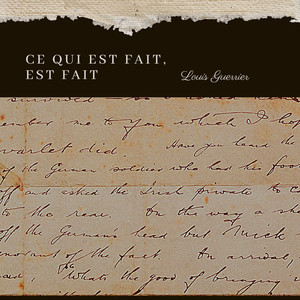 CE QUI EST FAIT,
EST FAIT
Louis Guerrier
survived
me to you which I hop
varlet did. Have you heard the
of the German soldier who had his foot
off and asked the Irish private to ca
to the rear. On the way a she
off the German's head but Mick
of the fact. On arrival,
"What's the good of bringing